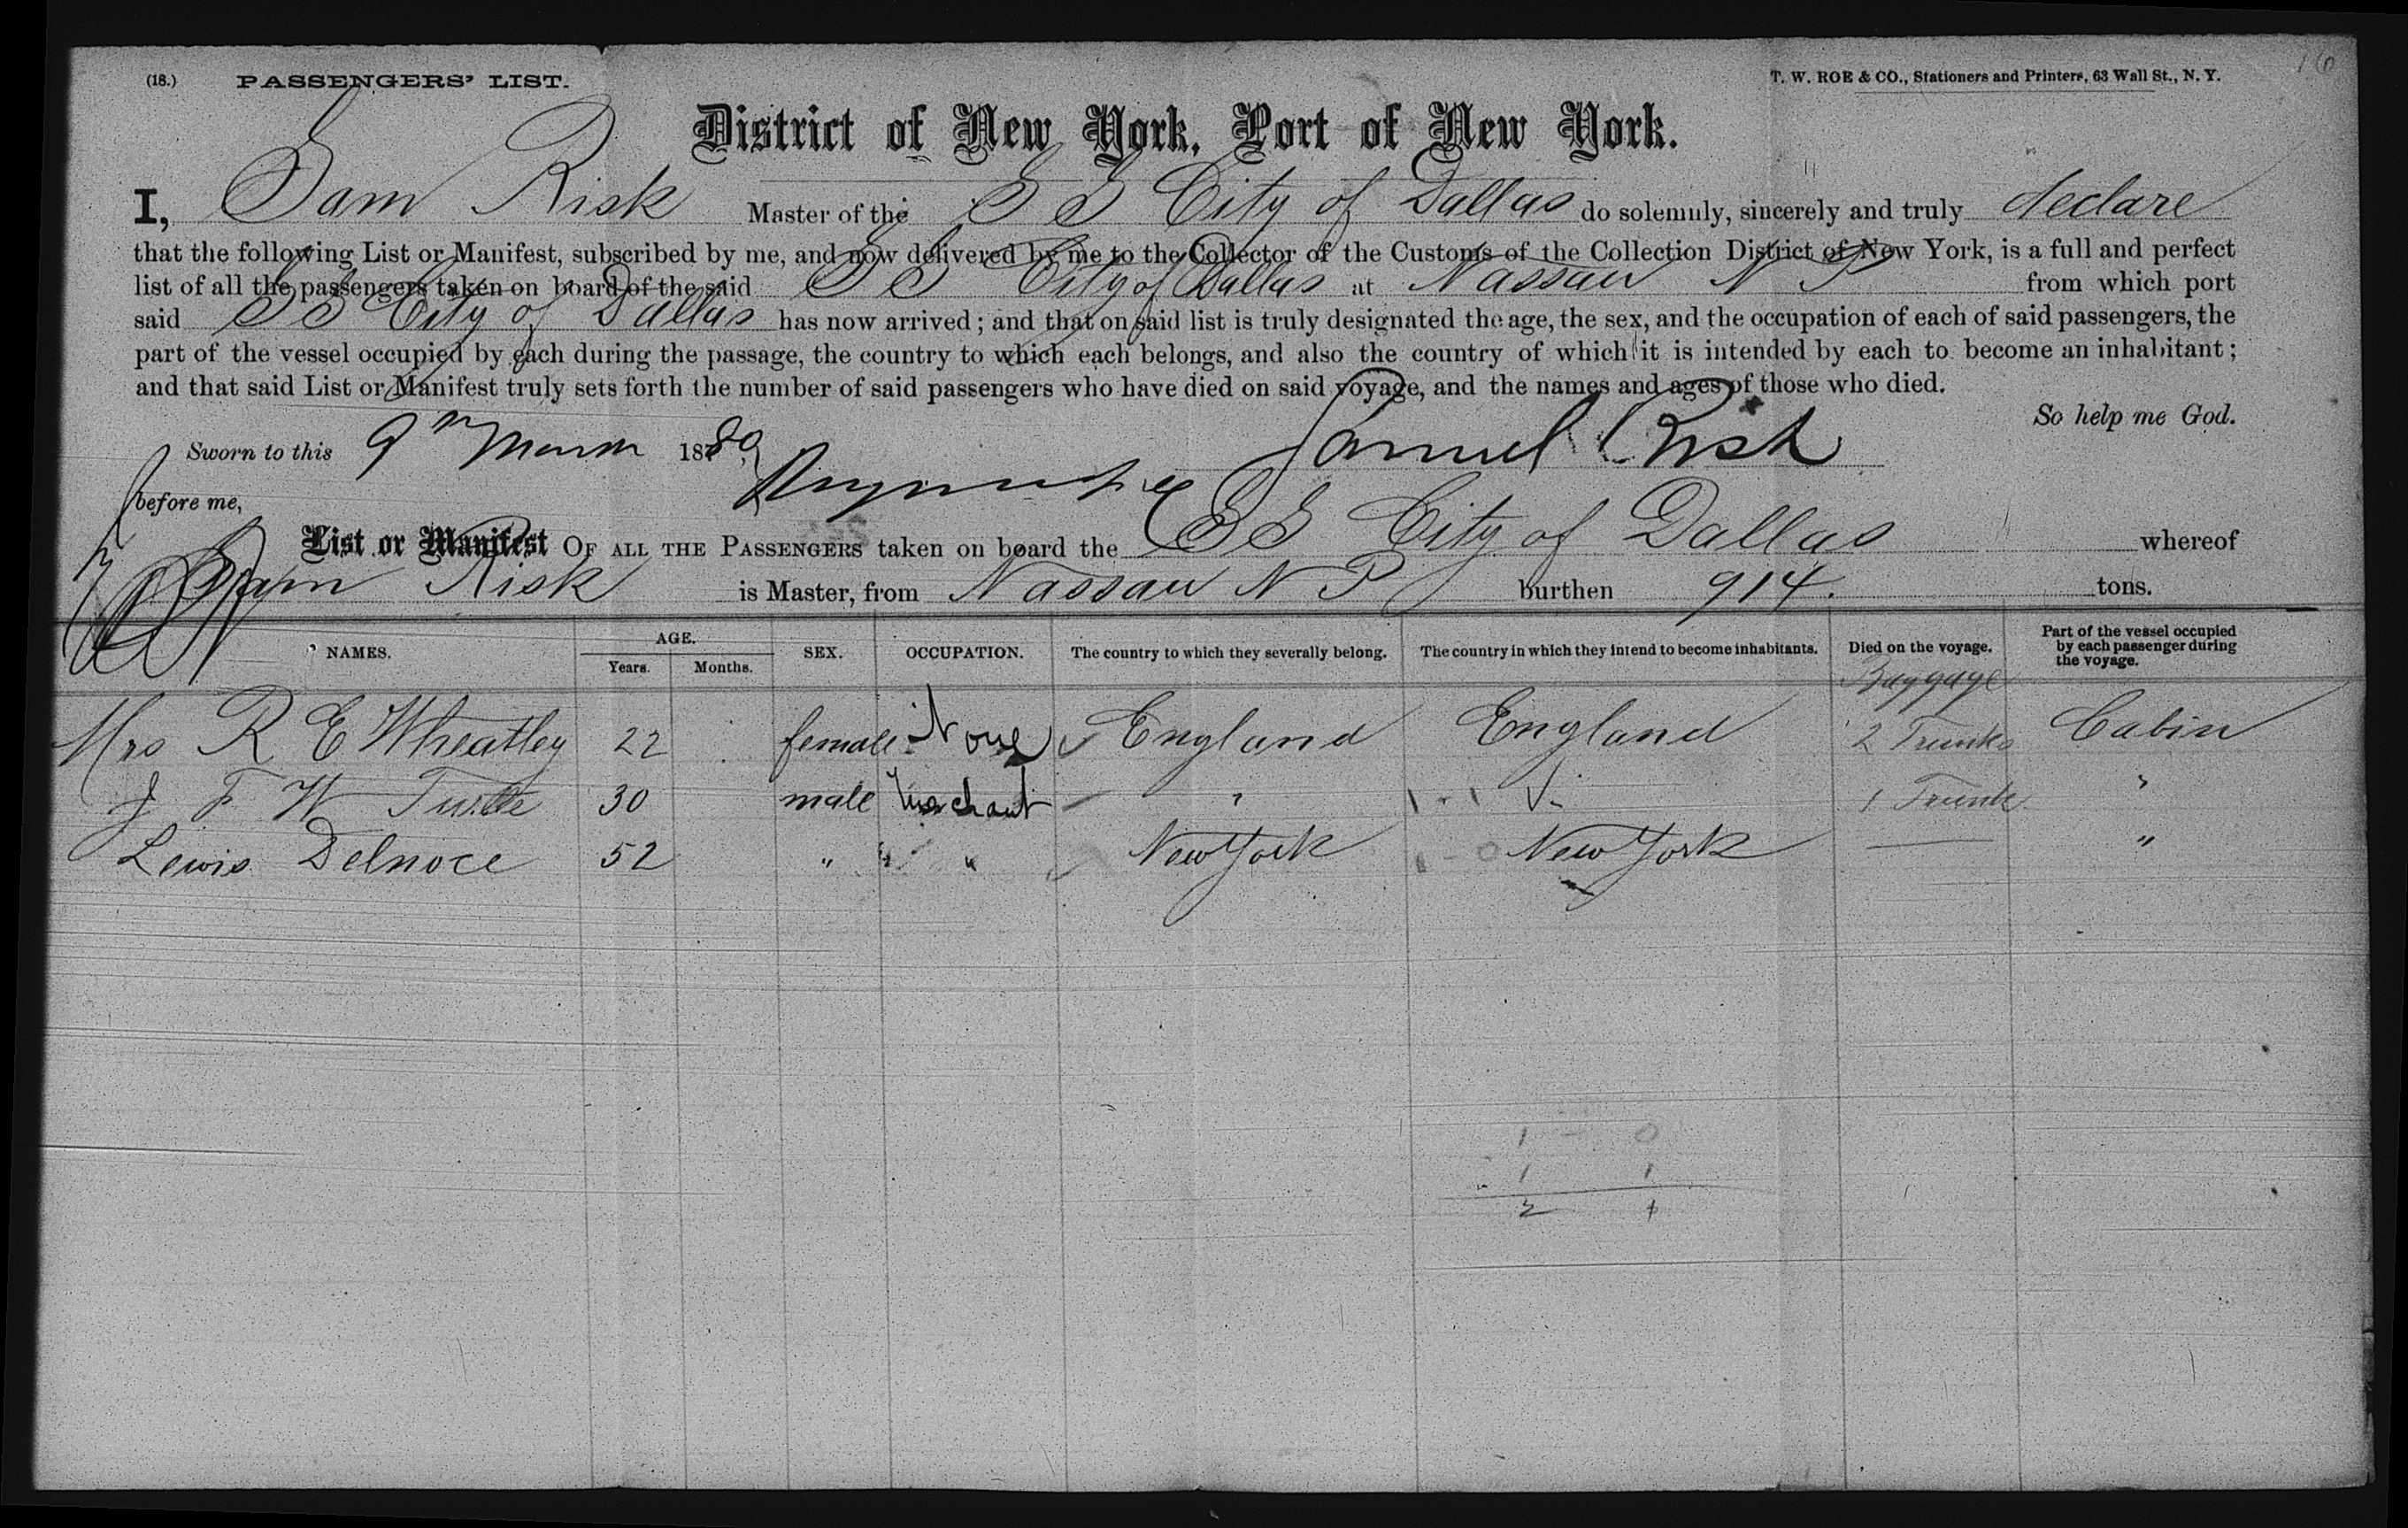 (18.) PASSENGERS' LIST. T. W. ROE & CO., Stationers and Printers, 63 Wall St., N. Y. 16
District of New York, Port of New York.
I, Sam Risk Master of the S S City of Dallas do solemnly, sincerely and truly declare
that the following List or Manifest, subscribed by me, and now delivered by me to the Collector of the Customs of the Collection District of New York, is a full and perfect
list of all the passengers taken on board of the said S S City of Dallas at Nassau N P from which port
said S S City of Dallas has now arrived; and that on said list is truly designated the age, the sex, and the occupation of each of said passengers, the
part of the vessel occupied by each during the passage, the country to which each belongs, and also the country of which it is intended by each to become an inhabitant;
and that said List or Manifest truly sets forth the number of said passengers who have died on said voyage, and the names and ages of those who died.
So help me God.
Sworn to this 9th March 1880 Samuel Risk
before me,
List or Manifest OF ALL THE PASSENGERS taken on board the S S City of Dallas whereof
Sam Risk is Master, from Nassau N P burthen 914. tons.
NAMES. AGE. Years. Months. SEX. OCCUPATION. The country to which they severally belong. The country in which they intend to become inhabitants. Died on the voyage. Part of the vessel occupied by each passenger during the voyage.
Baggage
Mrs R E Wheatley 22 female None England England 2 Trunks Cabin
J F W Turtle 30 male Merchant " 1 Trunk "
Lewis Delnoce 52 " " New York New York — "
1 - 0
1 1
2 1